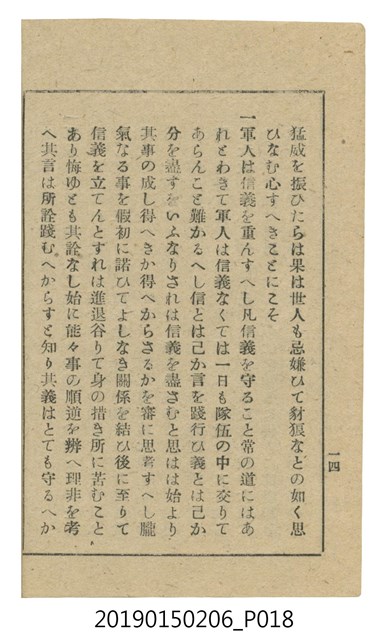 猛威を振ひたらは果は世人も忌嫌ひて豺狼なとの如く思
ひなむ心すへきことにこそ
一軍人は信義を重んすへし凡信義を守ること常の道にはあ
れとわきて軍人は信義なくては一日も隊伍の中に交りて
あらんこと難かるへし信とは己か言を踐行ひ義とは己か
分を盡すをいふなりされは信義を盡さむと思はは始より
其事の成し得へきか得へからさるかを審に思考すへし朧
氣なる事を假初に諾ひてよしなき關係を結ひ後に至りて
信義を立てんとすれは進退谷りて身の措き所に苦むこと
あり悔ゆとも其詮なし始に能々事の順逆を辨へ理非を考
へ其言は所詮踐むへからすと知り其義はとても守るへか
一四
20190150206_P018